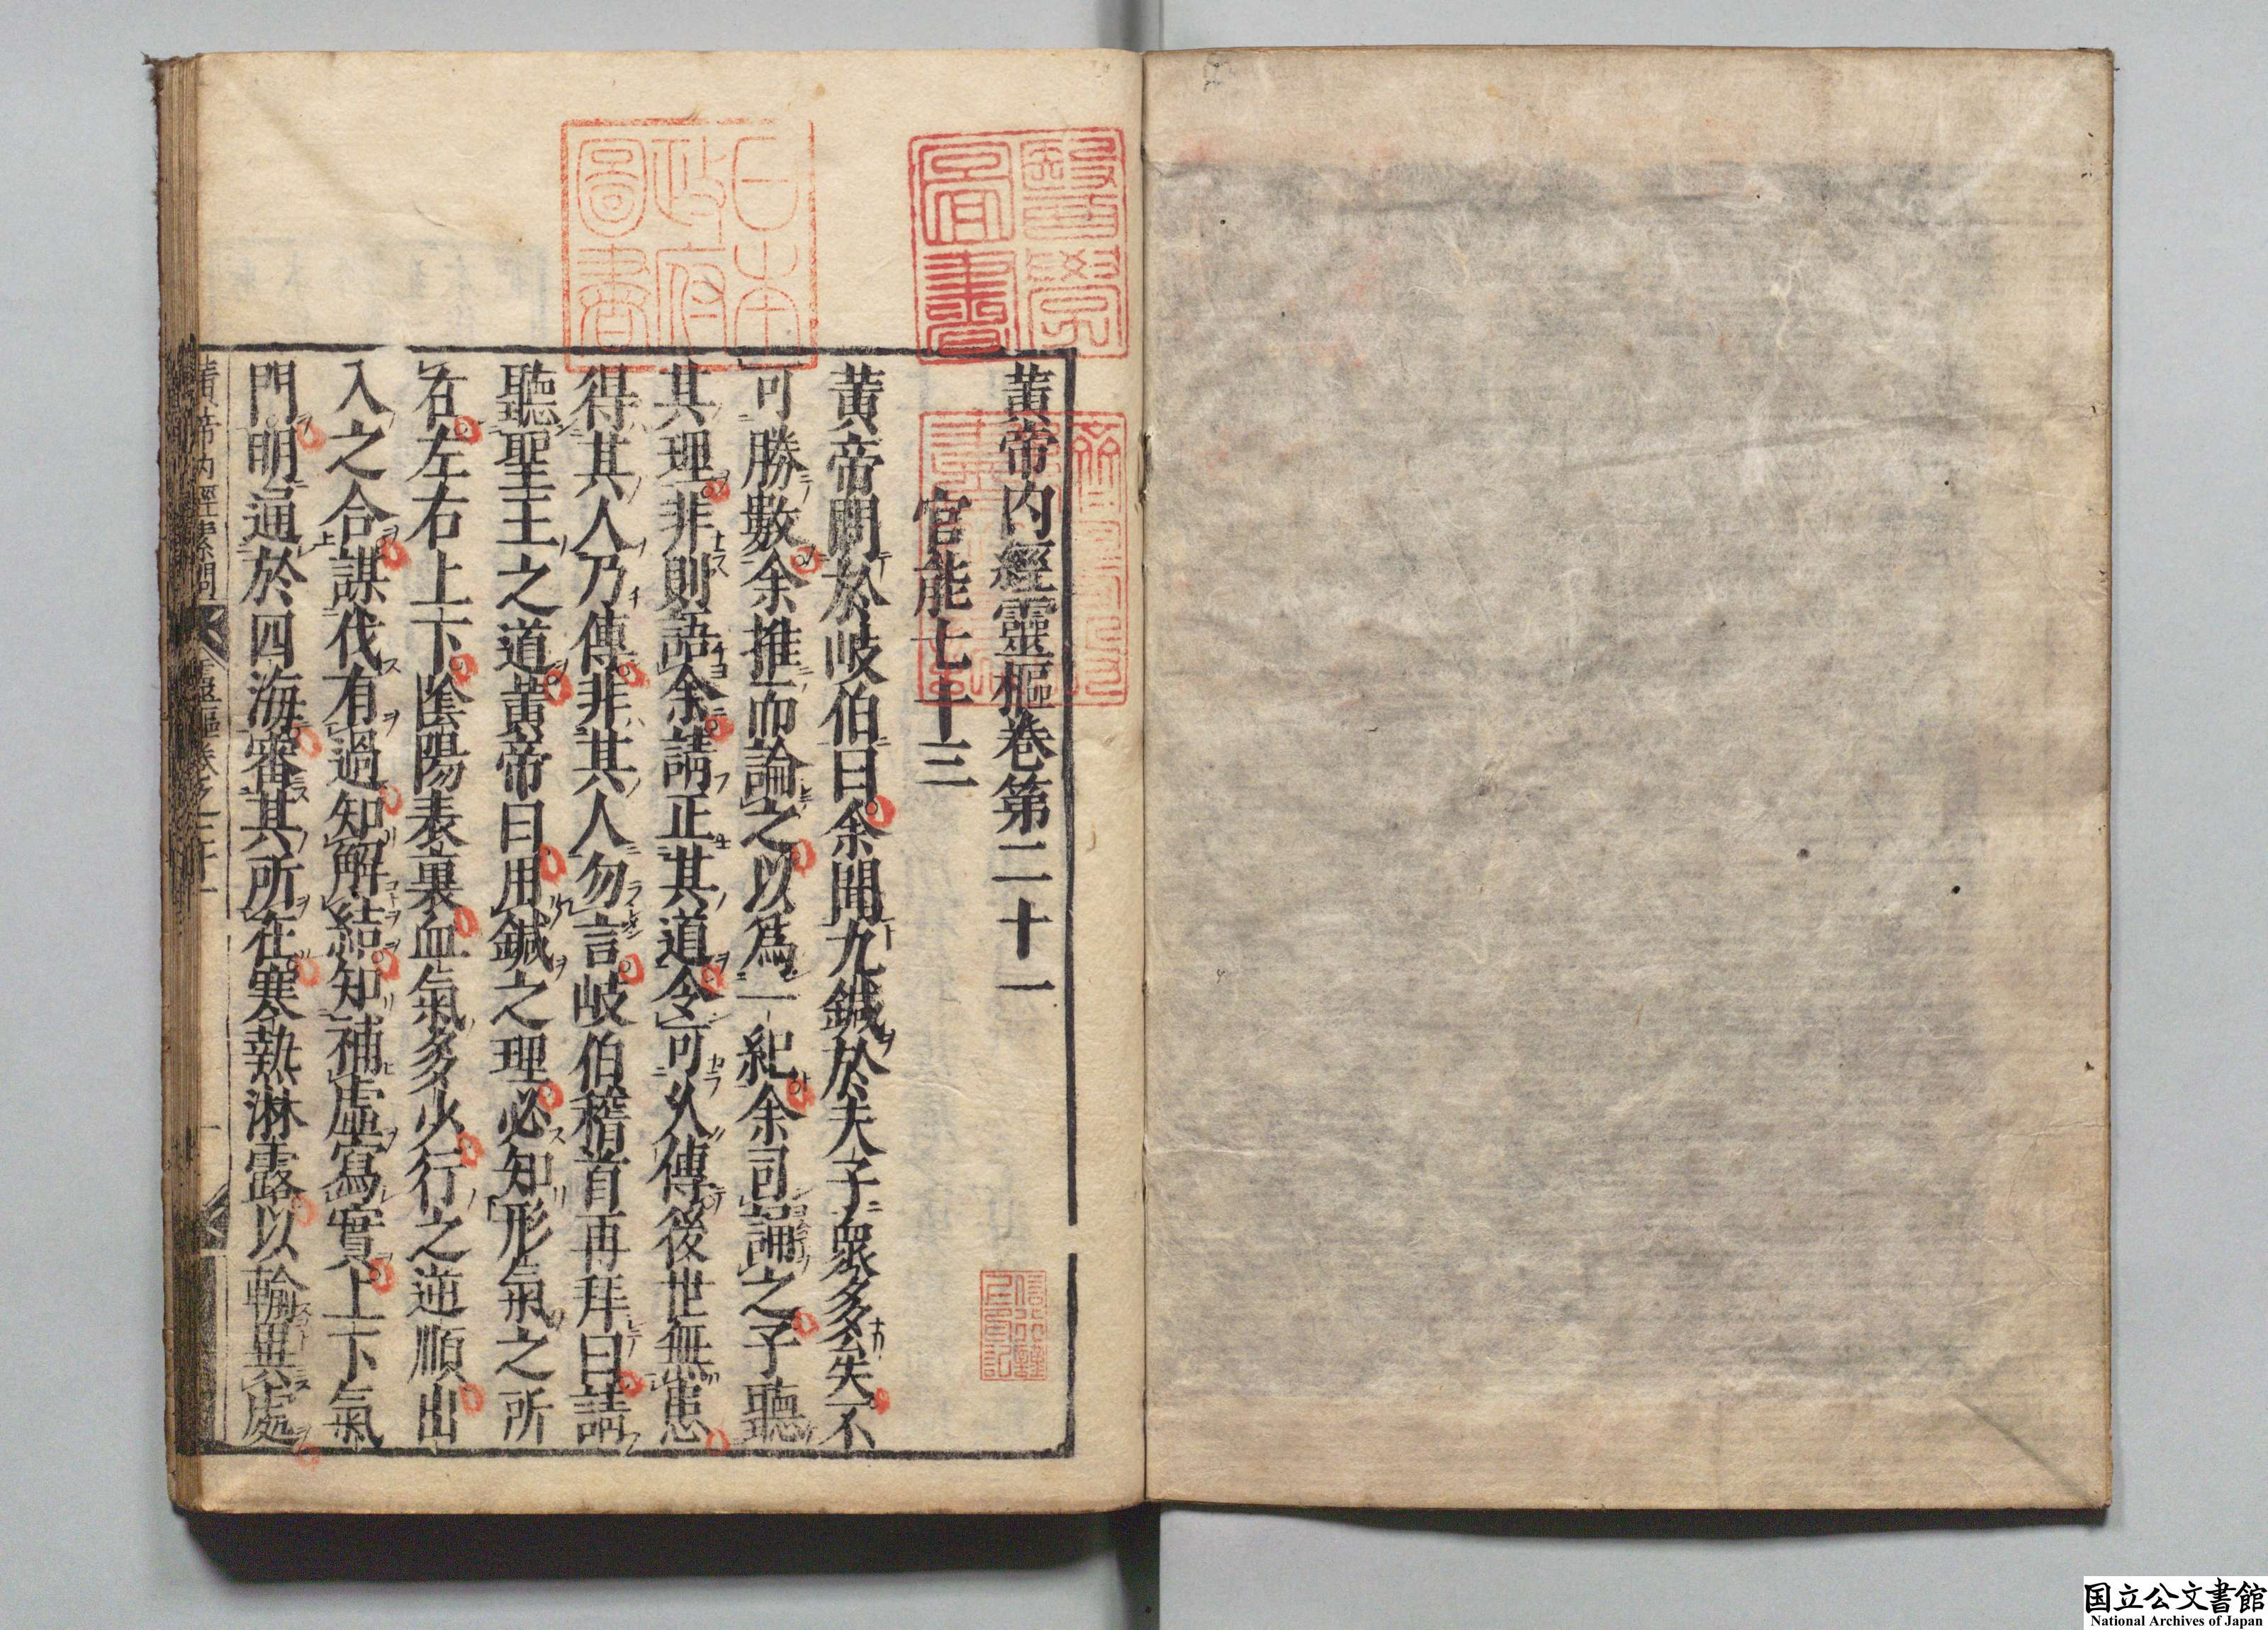 黃帝內經靈樞卷第二十一
官能七十三
黃帝問於岐伯曰余聞九鍼於夫子衆多矣不
可勝數余推而論之以爲一紀余司誦之子聽
其理非則語余請正其道令可久傳後世無患
得其人乃傳非其人勿言岐伯稽首再拜曰請
聽聖王之道黃帝曰用鍼之理必知形氣之所
在左右上下陰陽表裏血氣多少行之逆順出
入之合謀伐有過知解結知補虛寫實上下氣
門明通於四海審其所在寒熱淋露以輸異處
黃帝內經素問
靈樞卷之二十一
一
日本政府圖書
醫學圖書
国立公文書館
National Archives of Japan